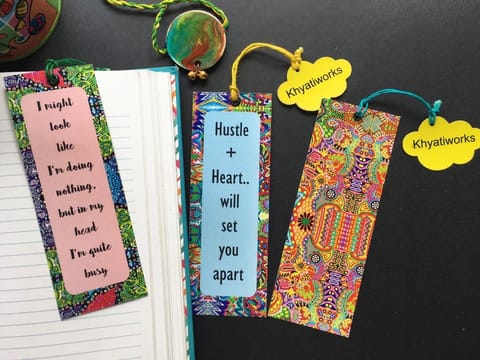 I might
look
like
I'm doing
nothing,
but in my
head
I'm quite
busy
Hustle
+
Heart..
will
set
you
apart
Khyatiworks
Khyatiworks